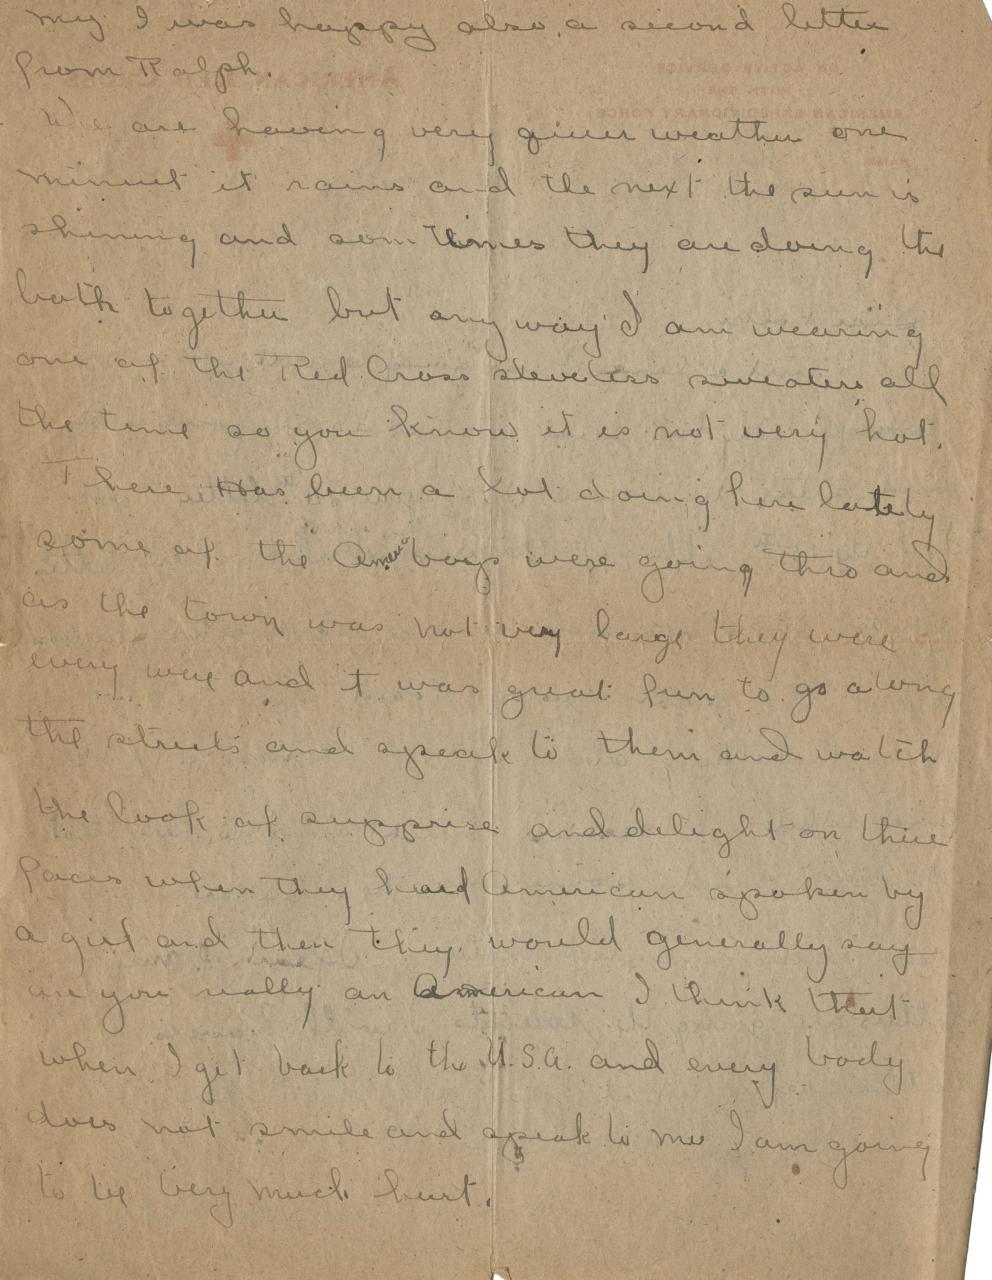 my I was happy also a second letter
from Ralph.
We are having very quier weather one
minuet it rains and the next the sun is
shining and som times they are doing the
both together but any way I am wearing
one of the Red Cross sleveless sweaters all
the time so you know it is not very hot.
There has been a lot doing here lately
some of the Americ boys were going thro and
as the town was not very large they were
every ware and it was great fun to go along
the streets and speak to them and watch
the look of supprise and delight on thier
faces when they heard American spoken by
a girl and then they would generally say
are you really an American I think that
when I get back to the U.S.A. and every body
does not smile and speak to me I am going
to be very much hurt.
AMERICAN RED CROSS
ON ACTIVE SERVICE
WITH THE
AMERICAN EXPEDITIONARY FORCE